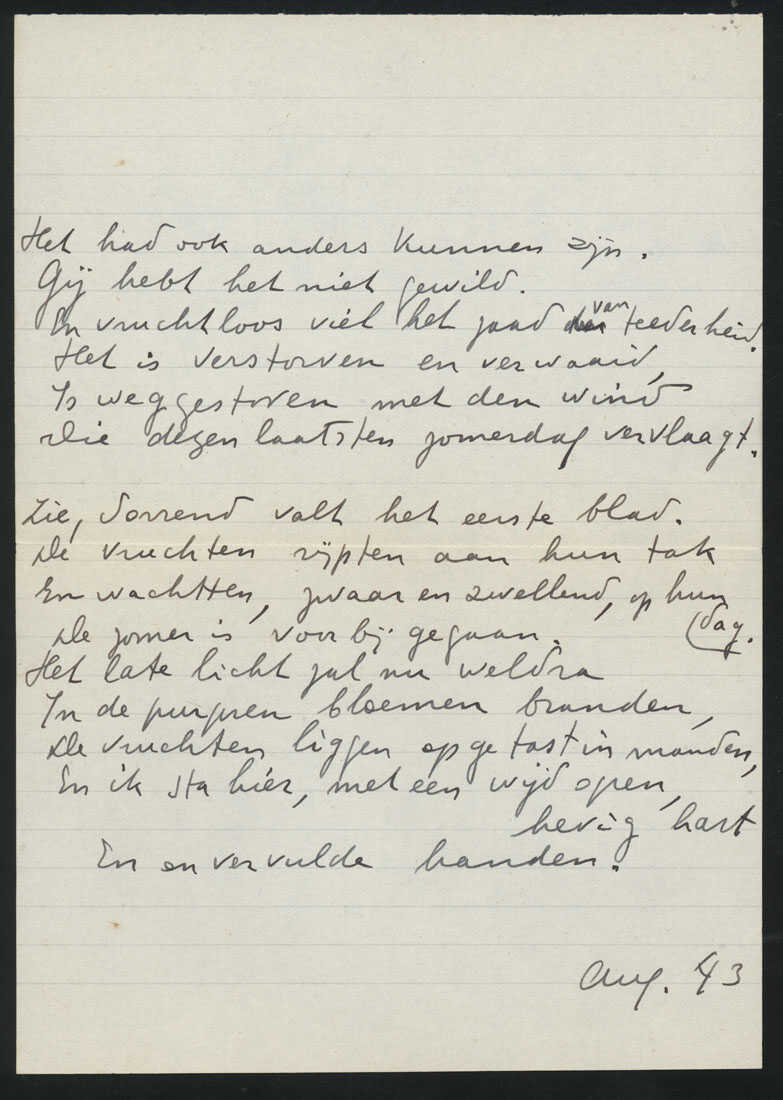 Het had ook anders kunnen zijn.
Gij hebt het niet gewild.
En vruchtloos viel het zaad van teederheid.
Het is verstorven en verwaaid,
Is weggestoven met den wind
Die dezen laatsten zomerdag vervlaagt.
Zie, dorrend valt het eerste blad.
De vruchten rijpten aan hun tak
En wachtten, zwaar en zwellend, op hun
dag.
De zomer is voorbij gegaan.
Het late licht zal nu weldra
In de purpren bloemen branden,
De vruchten liggen opgetast in manden,
En ik sta hier, met een wijd open,
hevig hart
En onvervulde handen.
Aug. 43